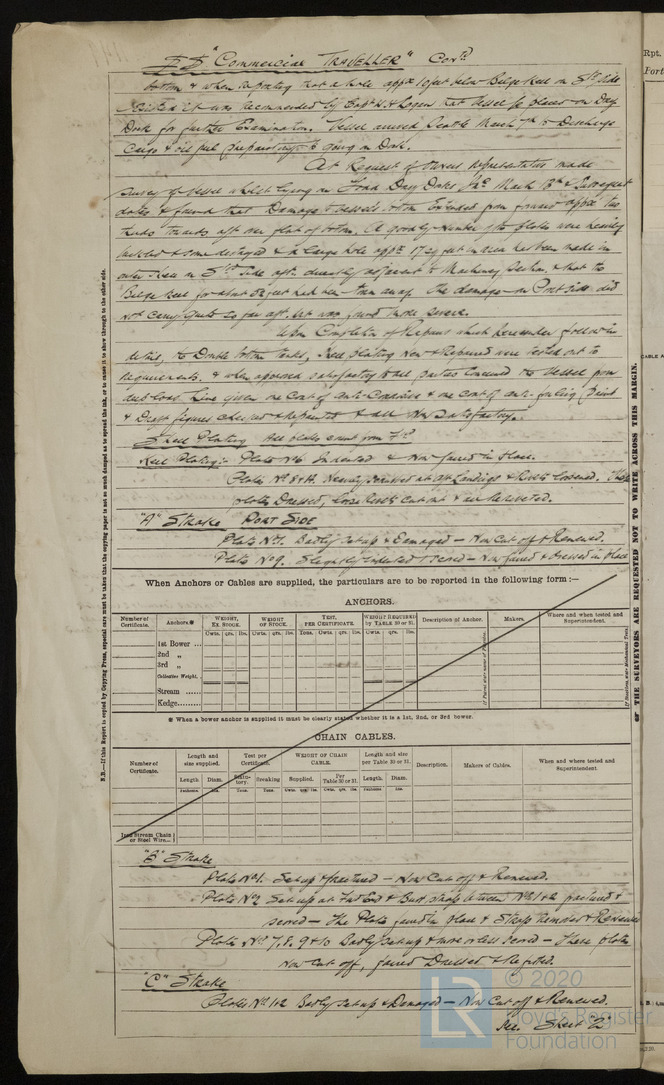 SS "Commercial TRAVELLER" Contd
bottom & when reporting that a hole appx 10 feet below Bilge keel on Std side
existed it was recommended by Capt Logan that vessel be placed on Dry
Dock for further Examination. Vessel arrived Seattle March 7th to Discharge
Cargo & oil fuel preparatory to going in Dock.
At Request of Owners representative made
survey of vessel whilst lying in Todd Dry Docks March 13th & subsequent
dates & found that Damage to vessel's bottom Extended from forward appx two
thirds towards aft over flat of bottom. A goodly number of the plates were heavily
buckled & some destroyed & a large hole appx feet in area had been made in
outer shell on Std Side aft. directly adjacent to Machinery Section, & that the
Bilge keel for about feet had been torn away. The damage on Port side did
not carry quite so far aft. but was much more severe.
Upon Completion of Repairs which hereunder follow in
detail, the Double bottom tanks, Keel plating New & Repaired were tested out to
requirements, & when approved satisfactory to all parties concerned the vessel from
deep load line given one Coat of anti-Corrosive & one Coat of anti-fouling Paint
& Draft figures checked & repainted & all Now Satisfactory.
Shell Plating All plates count from Fd
Keel Plating:- Plate No 6 Indented & Now faired in place.
Plates No 8 & 14. Heavily at Landings & Rivets loosened. These
plates Dressed, loose rivets cut out & Reriveted.
"A" Strake PORT SIDE
Plate No 1. Badly set up & Damaged - Now Cut off & Renewed.
Plate No 9. Slightly indented & scored - Now faired & dressed in place
When Anchors or Cables are supplied, the particulars are to be reported in the following form :—
ANCHORS.
Number of Certificate. Anchors * WEIGHT, EX. STOCK. WEIGHT OF STOCK. TEST, PER CERTIFICATE. WEIGHT REQUIRED by TABLE 30 or 31. Description of Anchor. Makers. Where and when tested and Superintendent.
Cwts. qrs. lbs. Cwts. qrs. lbs. Tons. Cwt. qrs. lbs. Cwts. qrs. lbs.
1st Bower ...
2nd „
3rd „
Collective Weight.
Stream ......
Kedge........
* When a bower anchor is supplied it must be clearly stated whether it is a 1st, 2nd, or 3rd bower.
CHAIN CABLES.
Number of Certificate. Length and size supplied. Test per Certificate. WEIGHT OF CHAIN CABLE. Length and size per Table 30 or 31. Description. Makers of Cables. Where and when tested and Superintendent.
Length. Diam. Statutory. Breaking Supplied. Per Table 30 or 31. Length. Diam.
Fathoms. Ins. Tons. Tons. Cwts. qrs. lbs. Cwts. qrs. lbs. Fathoms Ins.
Iron Stream Chain or Steel Wire...
"B" Strake
Plate No 1. Set up & fractured - Now Cut off & Renewed.
Plate No 2 Set up at Fwd End & Butt strap between No 1 & 2 fractured &
scored - The Plate faired in place & Strap Removed & Renewed
Plates Nos 7, 8, 9 & 10 Badly set up & more or less scored - These plates
Now Cut off, faired Dressed & Refitted.
"C" Strake
Plates No 1 & 2 Badly set up & Damaged - Now Cut off & Renewed.
See Sheet "2"
N.B.—If this Report is copied by Copying Press, especial care must be taken that the copying paper is not so much damped as to spread the ink, or to cause it to show through to the other side.
THE SURVEYORS ARE REQUESTED NOT TO WRITE ACROSS THIS MARGIN.
Rpt.
Port
© 2020
LR Lloyd's Register
Foundation